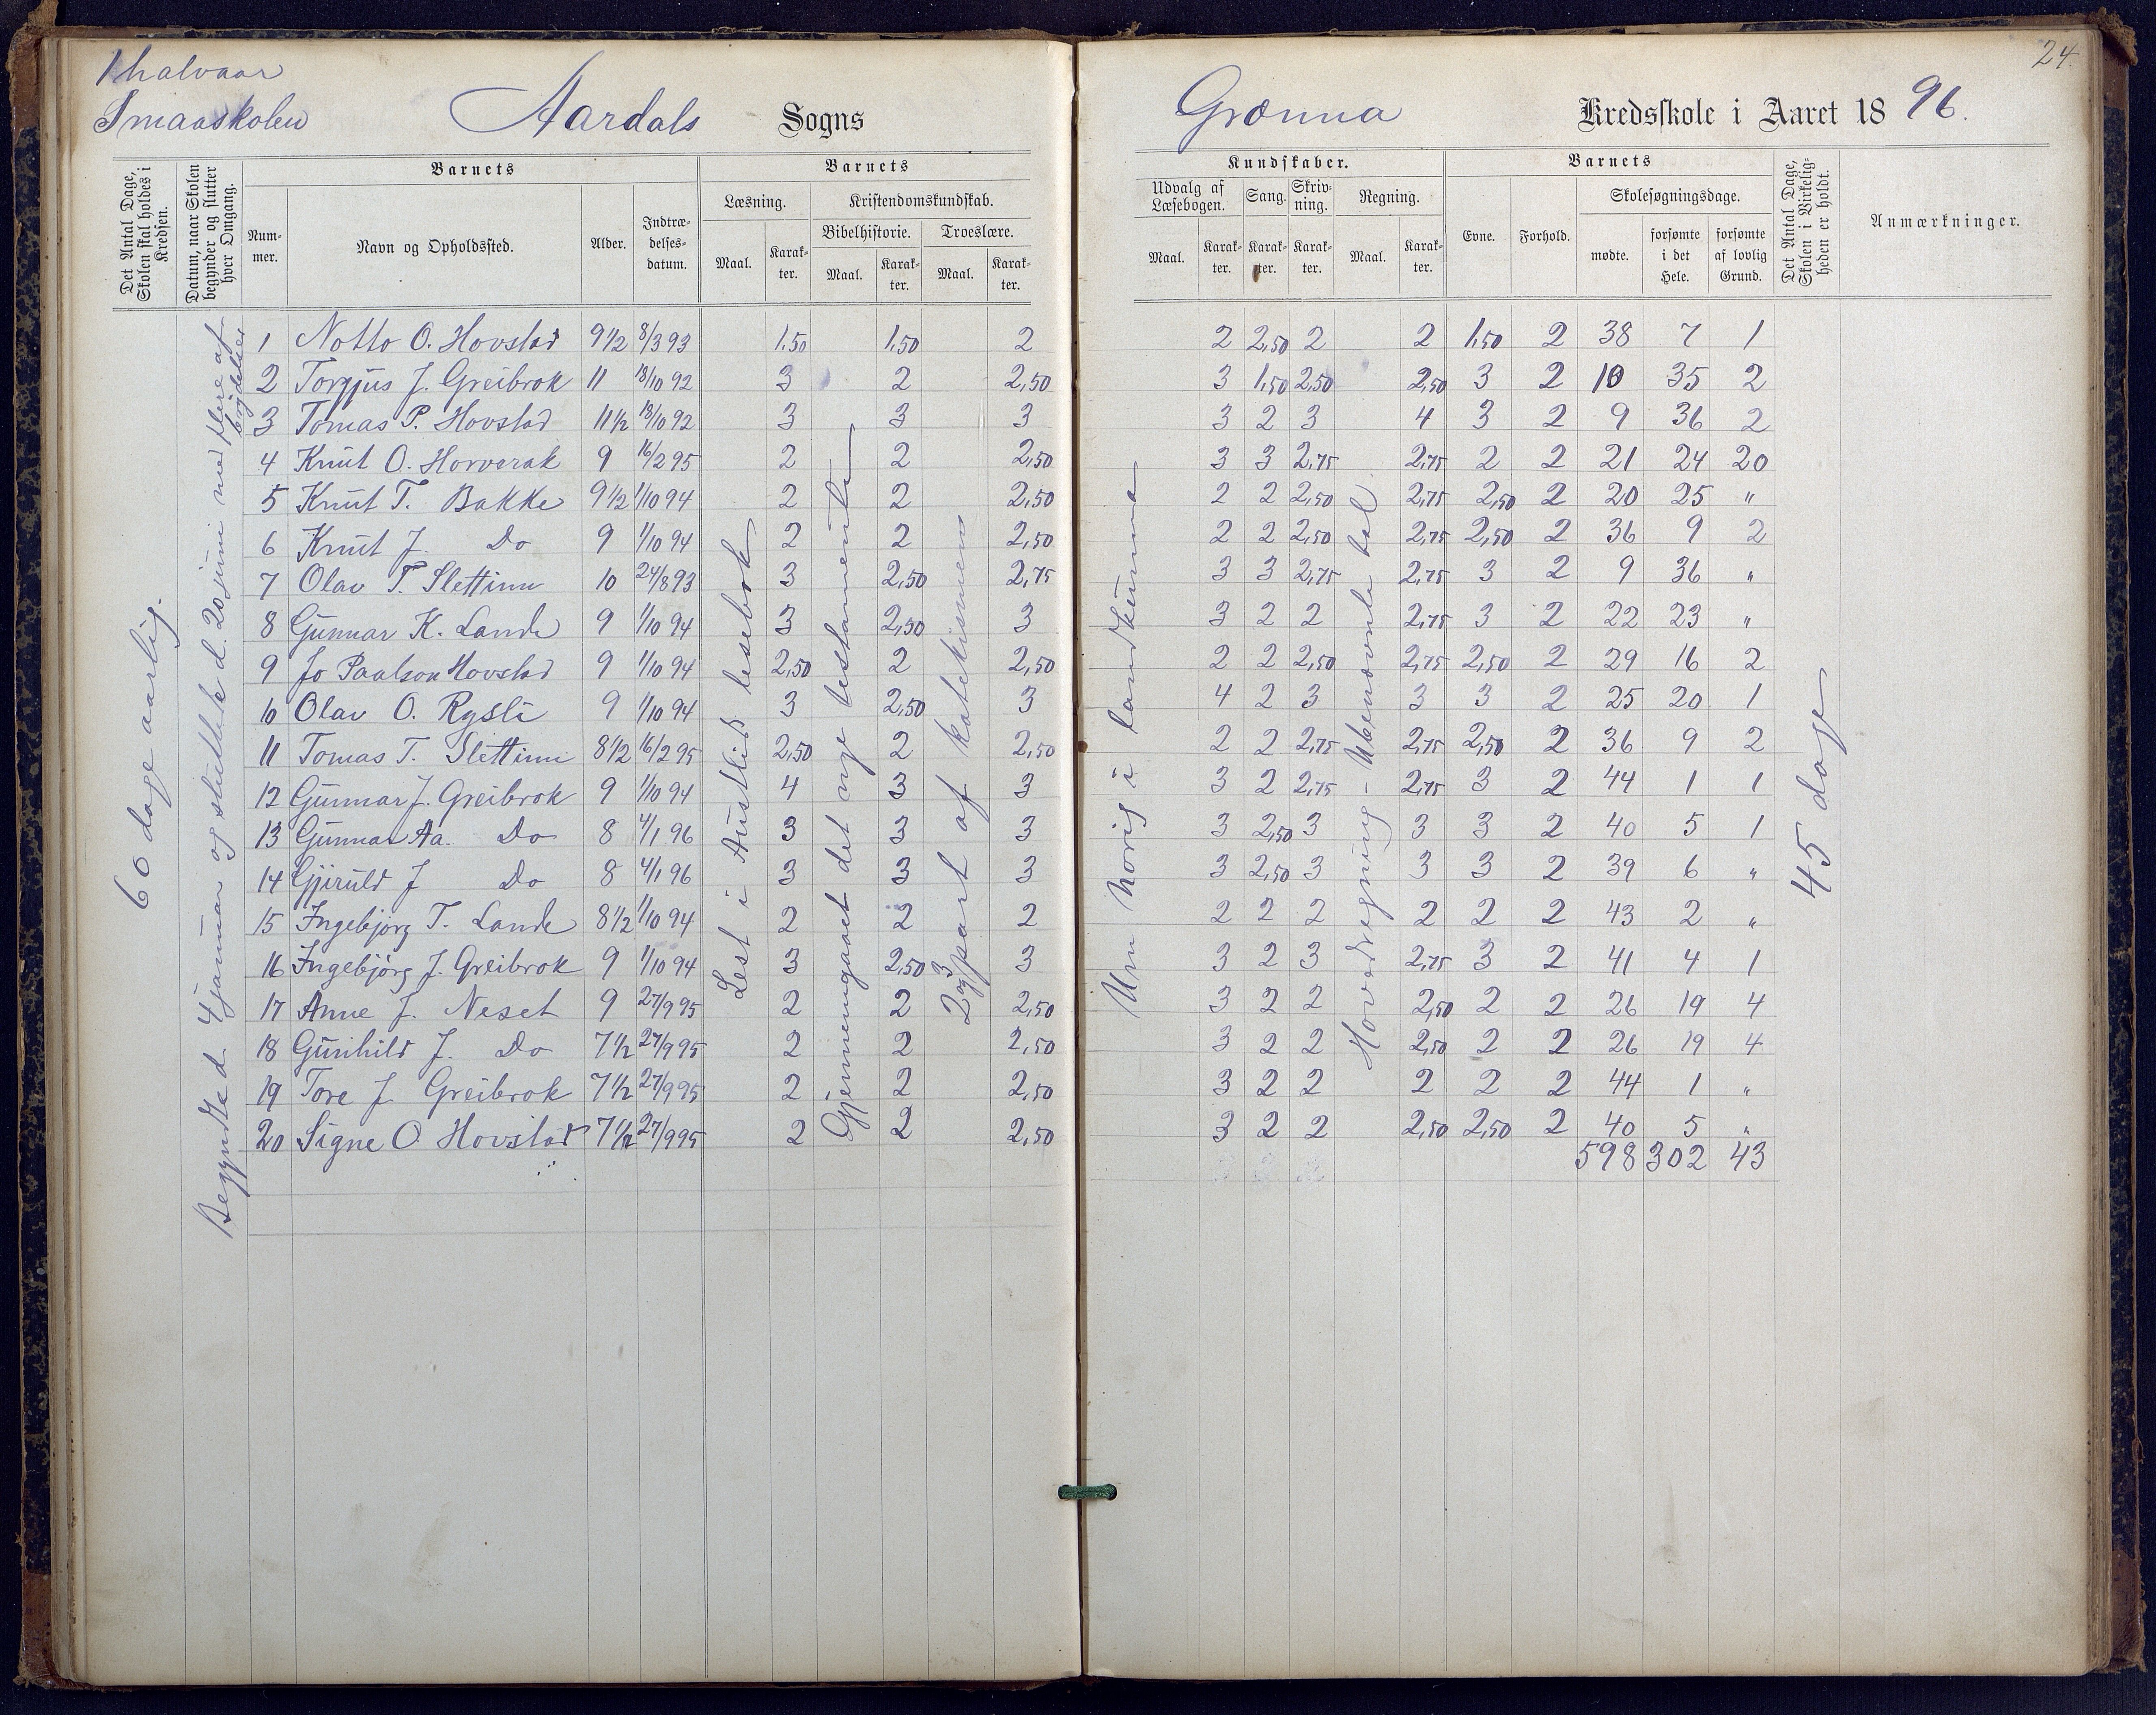 1 halvaar
Smaaskolen
Aardals Sogns
Det Antal Dage, Skolen skal holdes i Kredsen.
Datum, naar Skolen begynder og slutter hver Omgang.
Barnets
Nummer.
Navn og Opholdssted.
Alder.
Indtrædelsesdatum.
Barnets
Læsning.
Kristendomskundskab.
Bibelhistorie.
Troeslære.
Maal. Karakter. Maal. Karakter. Maal. Karakter.
60 dage aarlig.
Begyndte d. 4 januar og sluttede d. 20 juni med flere afbrydelser
Lest i Austlids lesebok
Gjennemgaaet det nye testamente
2 og 3 part af katekismen
1 Notto O. Hovstad 9 1/2 8/3 93 1,50 1,50 2
2 Torgjus J. Greibrok 11 18/10 92 3 2 2,50
3 Tomas P. Hovstad 11 1/2 18/10 92 3 3 3
4 Knut O. Horverak 9 16/2 95 2 2 2,50
5 Knut T. Bakke 9 1/2 1/10 94 2 2 2,50
6 Knut J. Do 9 1/10 94 2 2 2,50
7 Olav T. Slettinn 10 24/8 93 3 2,50 2,75
8 Gunnar K. Lande 9 1/10 94 3 2,50 3
9 Jo Paalson Hovstad 9 1/10 94 2,50 2 2,50
10 Olav O. Rysli 9 1/10 94 3 2,50 3
11 Tomas T. Slettinn 8 1/2 16/2 95 2,50 2 2,50
12 Gunnar J. Greibrok 9 1/10 94 4 3 3
13 Gunnar Aa. Do 8 4/1 96 3 3 3
14 Gjeruld J Do 8 4/1 96 3 3 3
15 Ingebjørg T. Lande 8 1/2 1/10 94 2 2 2
16 Ingebjørg J. Greibrok 9 1/10 94 3 2,50 3
17 Anne J. Neset 9 27/9 95 2 2 2,50
18 Gunhild J. Do 7 1/2 27/9 95 2 2 2,50
19 Tore J Greibrok 7 1/2 27/9 95 2 2 2,50
20 Signe O Hovstad 7 1/2 27/9 95 2 2 2,50
24.
Grænna Kredsskole i Aaret 1896.
Kundskaber.
Udvalg af Læsebogen.
Sang.
Skrivning.
Regning.
Maal. Karakter. Karakter. Karakter. Maal. Karakter.
Barnets
Evne.
Forhold.
Skolesøgningsdage.
mødte.
forsømte i det Hele.
forsømte af lovlig Grund.
Det Antal Dage, Skolen i Virkeligheden er holdt.
Anmærkninger.
Um Norig i landkunna
Hovedregning - Ubenævnte tal
45 dage
2 2,50 2 2 1,50 2 38 7 1
3 1,50 2,50 2,50 3 2 10 35 2
3 2 3 4 3 2 9 36 2
3 3 2,75 2,75 2 2 21 24 20
2 2 2,50 2,75 2,50 2 20 25 "
2 2 2,50 2,75 2,50 2 36 9 2
3 3 2,75 2,75 3 2 9 36 "
3 2 2 2,75 3 2 22 23 "
2 2 2,50 2,75 2,50 2 29 16 2
4 2 3 3 3 2 25 20 1
2 2 2,75 2,75 2,50 2 36 9 2
3 2 2,75 2,75 3 2 44 1 1
3 2,50 3 3 3 2 40 5 1
3 2,50 3 3 3 2 39 6 "
2 2 2 2 2 2 43 2 "
3 2 3 2,75 3 2 41 4 1
3 2 2 2,50 2 2 26 19 4
3 2 2 2,50 2 2 26 19 4
3 2 2 2 2 2 44 1 "
3 2 2 2,50 2,50 2 40 5 "
598 302 43